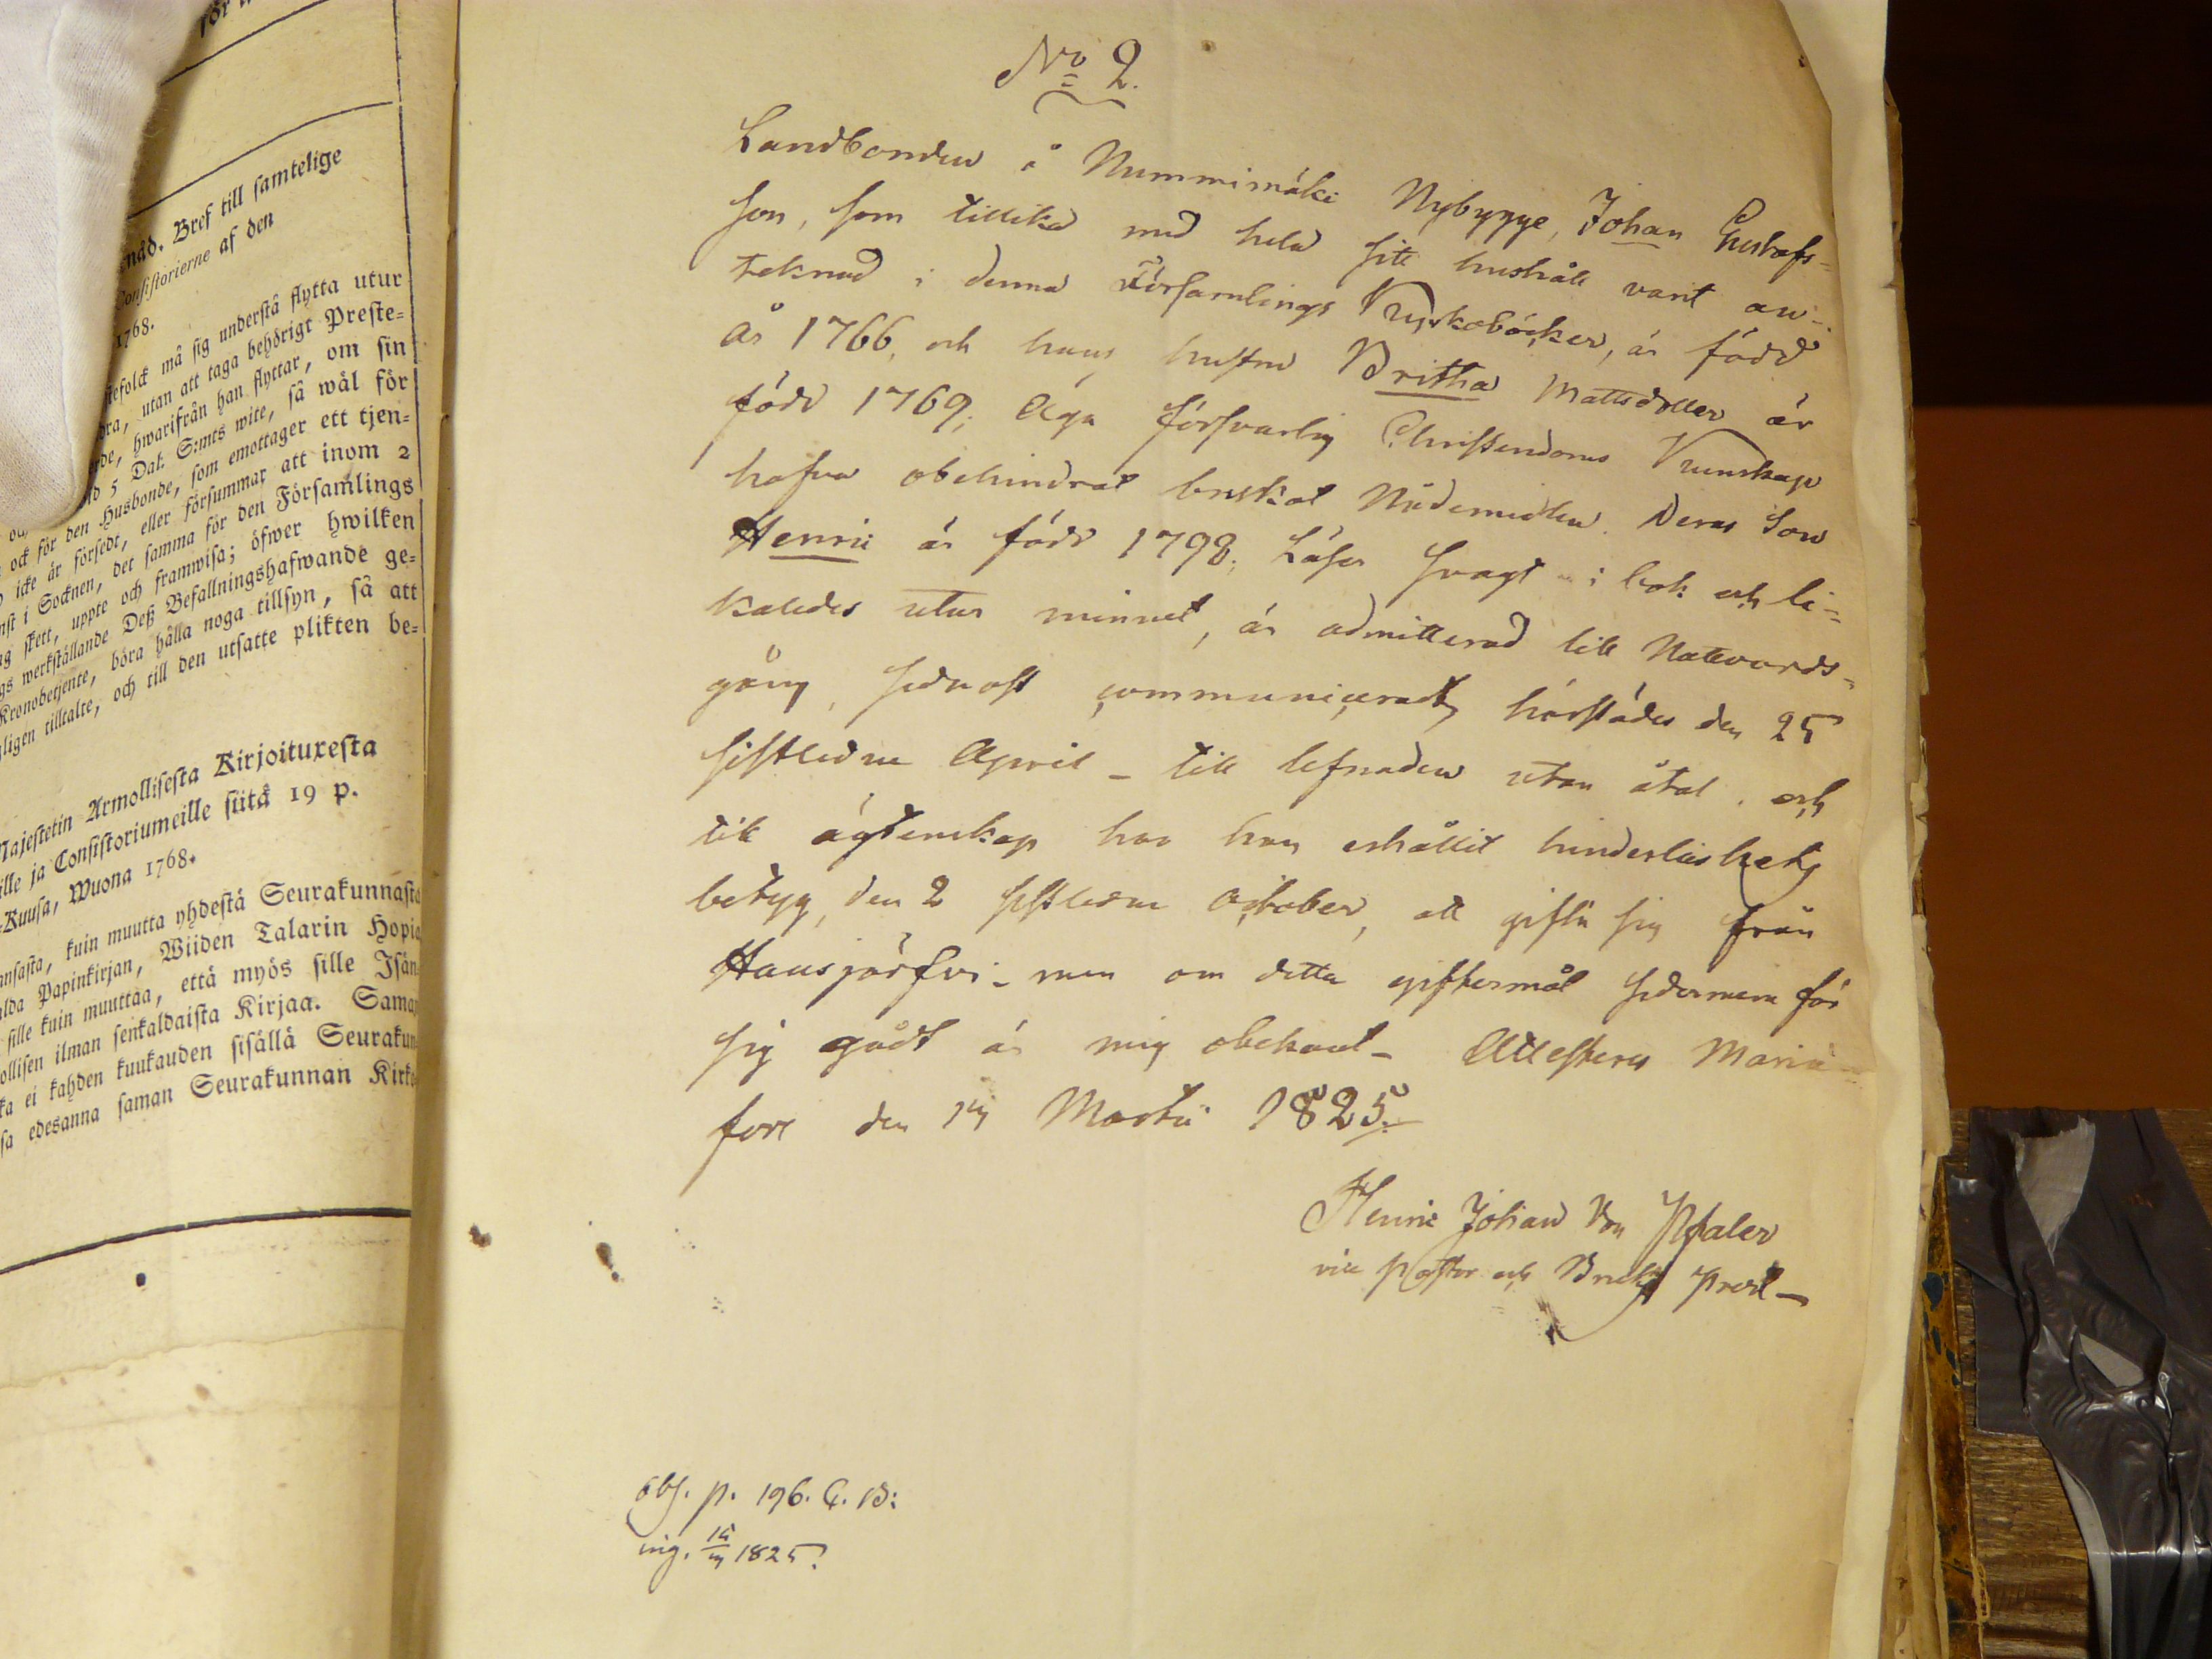 nåd. Bref till samtelige
Consistorierne af den
1768.
tjefolck må sig understå flytta utur
dra, utan att taga behörigt Preste=
erde, hwarifrån han flyttar, om sin
5 Dal. S:mts wite, så wäl för
ock för den Husbonde, som emottager ett tjen=
icke är försedt, eller försummar att inom 2
nst i Socknen, det samma för den Församlings
skett, uppte och framwisa; öfwer hwilken
werkställande Deß Befallningshafwande ge=
Kronobetjente, böra hålla noga tillsyn, så att
ligen tilltalte, och till den utsatte plikten be=
Majestetin Armollisesta Kirjoituxesta
ille ja Consistoriumeille siitä 19 p.
Kuusa, Wuona 1768.
ansasta, kuin muutta yhdestä Seurakunnasta
alda Papinkirjan, Wiiden Talarin Hopia
sille kuin muuttaa, että myös sille Isän
ollisen ilman senkaldaista Kirjaa. Saman
ka ei kahden kuukauden sisällä Seurakun
sa edesanna saman Seurakunnan Kirko
No 2.
Landbonden å Nummimäki Nybygge, Johan Gustafs=
son, som tillika med hela sitt hushåll varit an=
teknad i denna Församlings Kyrkoböcker, är född
år 1766, och hans hustru Britha Mattsdotter är
född 1769; äga försvarlig Christendoms Kunskap
hafva obehindrat brukat Nådemedlen. Deras Son
Henric är född 1798, Läser svagt i bok och li=
kaledes utur minnet, är admitterad till Nattvards=
gång, sednast communicerat härstädes den 25
sistledne April - till lefnaden utan åtal, och
till ägtenskap har han erhållit hinderlöshets
betyg, den 2 sistledne October, att gifta sig från
Hausjärfvi - men om detta giftermål sedermera för
sig gådt är mig obekant - Attesteras Marie=
fors den 14 Martii 1825.
Henric Johan Von Pfaler
vice Pastor och Bruks Pred-
obs. p. 196. C. B:
ing. 1825.